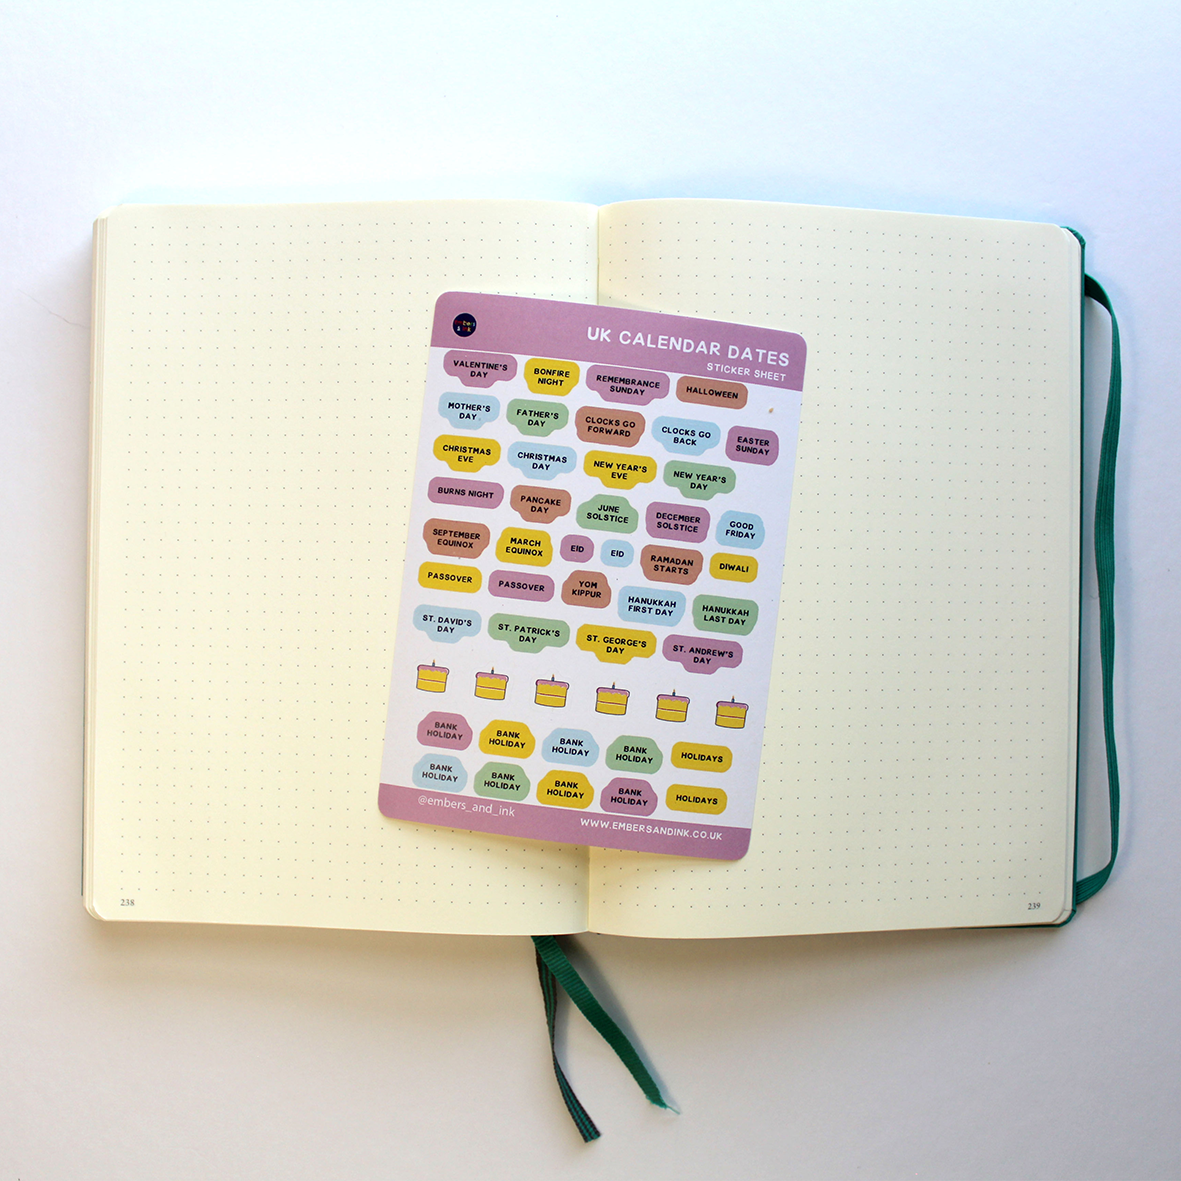 embers
& ink
UK CALENDAR DATES
STICKER SHEET
VALENTINE'S
DAY
BONFIRE
NIGHT
REMEMBRANCE
SUNDAY
HALLOWEEN
MOTHER'S
DAY
FATHER'S
DAY
CLOCKS GO
FORWARD
CLOCKS GO
BACK
EASTER
SUNDAY
CHRISTMAS
EVE
CHRISTMAS
DAY
NEW YEAR'S
EVE
NEW YEAR'S
DAY
BURNS NIGHT
PANCAKE
DAY
JUNE
SOLSTICE
DECEMBER
SOLSTICE
GOOD
FRIDAY
SEPTEMBER
EQUINOX
MARCH
EQUINOX
EID
EID
RAMADAN
STARTS
DIWALI
PASSOVER
PASSOVER
YOM
KIPPUR
HANUKKAH
FIRST DAY
HANUKKAH
LAST DAY
ST. DAVID'S
DAY
ST. PATRICK'S
DAY
ST. GEORGE'S
DAY
ST. ANDREW'S
DAY
BANK
HOLIDAY
BANK
HOLIDAY
BANK
HOLIDAY
BANK
HOLIDAY
HOLIDAYS
BANK
HOLIDAY
BANK
HOLIDAY
BANK
HOLIDAY
BANK
HOLIDAY
HOLIDAYS
@embers_and_ink
WWW.EMBERSANDINK.CO.UK
238
239